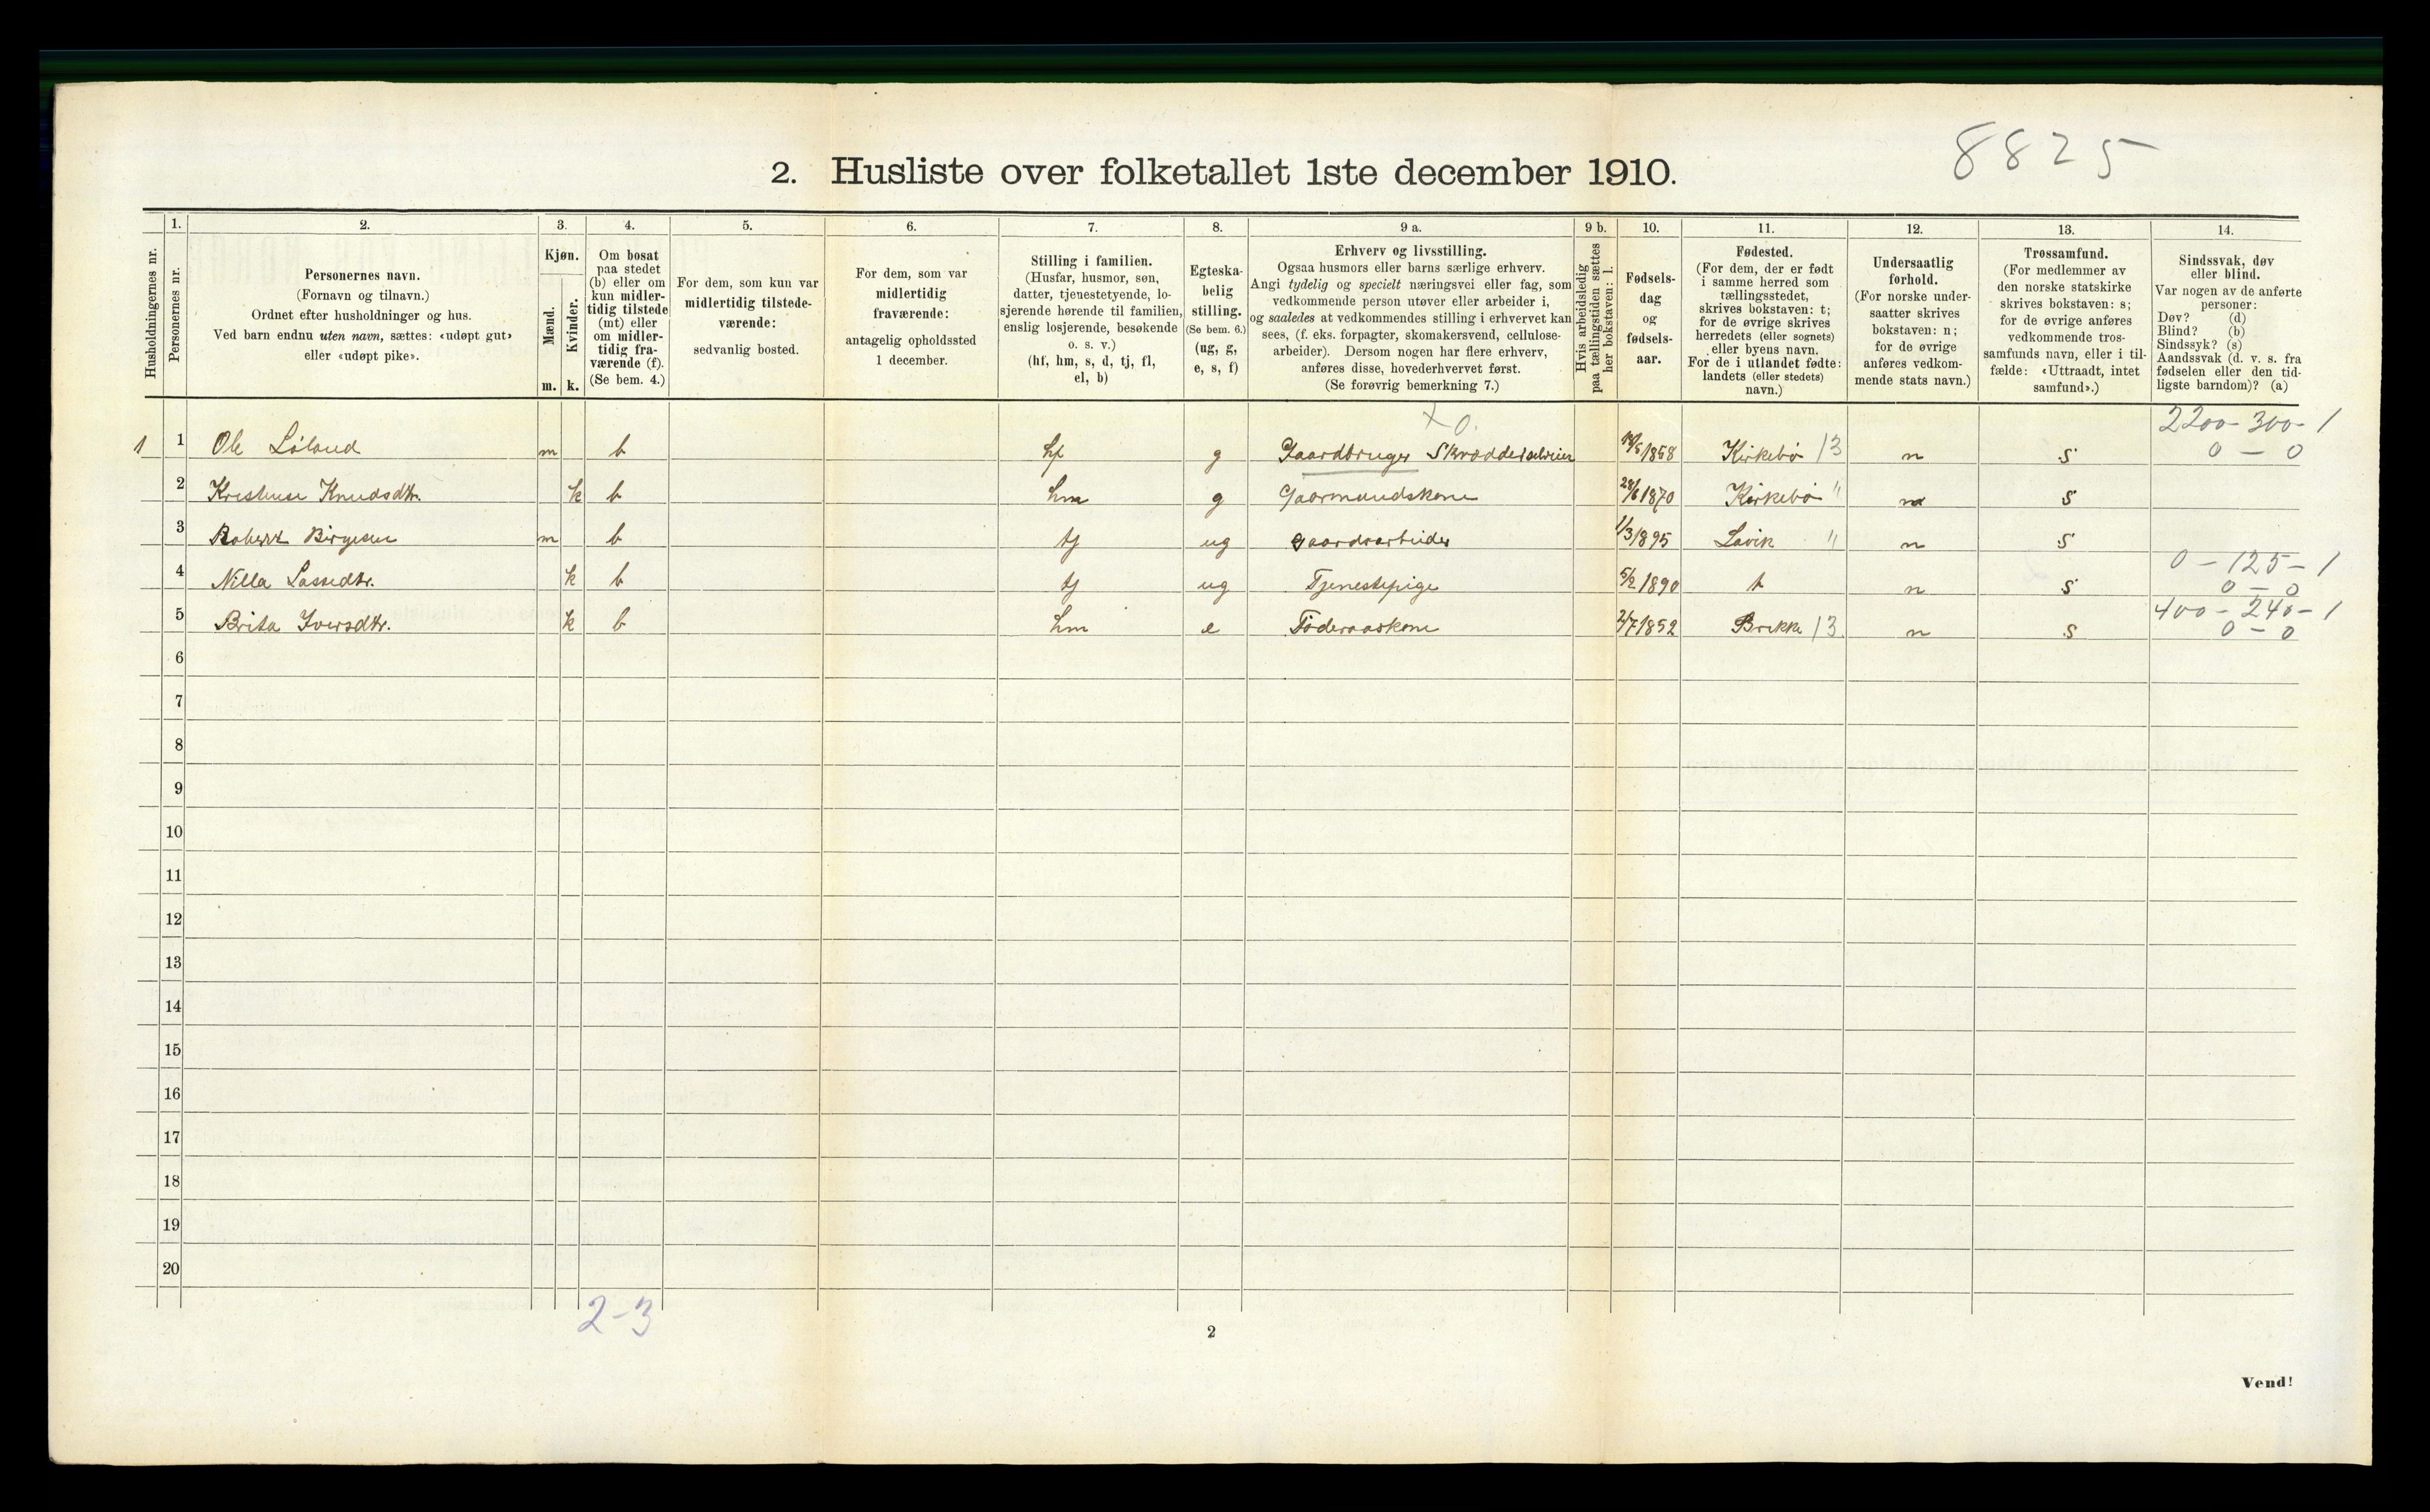 8825
2. Husliste over folketallet 1ste december 1910.
Husholdningernes nr.
1.
Personernes nr.
2.
Personernes navn.
(Fornavn og tilnavn.)
Ordnet efter husholdninger og hus.
Ved barn endnu uten navn, sættes: «udøpt gut»
eller «udøpt pike».
3.
Kjøn.
Mænd.
Kvinder.
m. k.
4.
Om bosat
paa stedet
(b) eller om
kun midler-
tidig tilstede
(mt) eller
om midler-
tidig fra-
værende (f).
(Se bem. 4.)
5.
For dem, som kun var
midlertidig tilstede-
værende:
sedvanlig bosted.
6.
For dem, som var
midlertidig
fraværende:
antagelig opholdssted
1 december.
7.
Stilling i familien.
(Husfar, husmor, søn,
datter, tjenestetyende, lo-
sjerende hørende til familien,
enslig losjerende, besøkende
o. s. v.)
(hf, hm, s, d, tj, fl,
el, b)
8.
Egteska-
belig
stilling.
(Se bem. 6.)
(ug, g,
e, s, f)
9 a.
Erhverv og livsstilling.
Ogsaa husmors eller barns særlige erhverv.
Angi tydelig og specielt næringsvei eller fag, som
vedkommende person utøver eller arbeider i,
og saaledes at vedkommendes stilling i erhvervet kan
sees, (f. eks. forpagter, skomakersvend, cellulose-
arbeider). Dersom nogen har flere erhverv,
anføres disse, hovederhvervet først.
(Se forøvrig bemerkning 7.)
9 b.
Hvis arbeidsledig
paa tællingstiden sættes
her bokstaven: l.
10.
Fødsels-
dag
og
fødsels-
aar.
11.
Fødested.
(For dem, der er født
i samme herred som
tællingsstedet,
skrives bokstaven: t;
for de øvrige skrives
herredets (eller sognets)
eller byens navn.
For de i utlandet fødte:
landets (eller stedets)
navn.)
12.
Undersaatlig
forhold.
(For norske under-
saatter skrives
bokstaven: n;
for de øvrige
anføres vedkom-
mende stats navn.)
13.
Trossamfund.
(For medlemmer av
den norske statskirke
skrives bokstaven: s;
for de øvrige anføres
vedkommende tros-
samfunds navn, eller i til-
fælde: «Uttraadt, intet
samfund».)
14.
Sindssvak, døv
eller blind.
Var nogen av de anførte
personer:
Døv? (d)
Blind? (b)
Sindssyk? (s)
Aandssvak (d. v. s. fra
fødselen eller den tid-
ligste barndom)? (a)
x 0. 2200-300-1
1 1 Ole Løland m b hf g Gaardbruger Skrædder selveier 1858 Kirkebø 13 n s 0 - 0
2 Kristense Knudsdtr. k b hm g Gaarmandskone 28/6 1870 Kirkebø " n s
3 Robert Birgesen m b tj ug gaardsarbeider 1/3 1895 Lavik " n s
0 - 125 - 1
4 Nilla Lassedtr. k b tj ug Tjenestepige 5/2 1890 t n s 0 - 0
400 - 240 - 1
5 Brita Iversdtr. k b hm e Føderaaskone 2/7 1852 Brekke 13 n s 0 - 0
6
7
8
9
10
11
12
13
14
15
16
17
18
19
20
2-3
2
Vend!